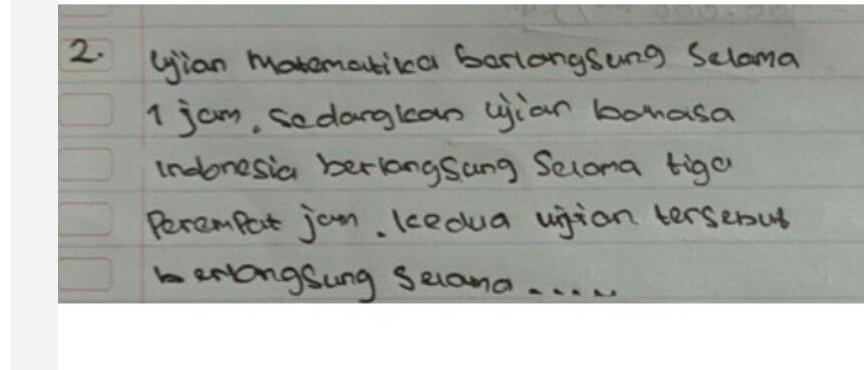 2. Ujian Matematika berlangsung Selama
1 jam, sedangkan ujian bahasa
Indonesia berlangsung Selama tiga
Perempat jam. kedua ujian tersebut
berlangsung Selama .....